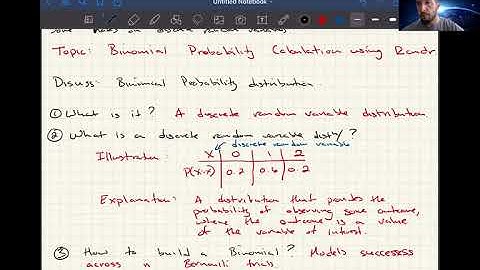 Untitled Notebook
Topic: Binomial Probability Calculation using R and r
Discuss: Binomial Probability distribution.
① What is it? A discrete random variable distribution
② What is a discrete random variable dist/?
discrete random variable
Illustration: X 0 1 2
P(X=x) 0.2 0.6 0.2
Explanation: A distribution that provides the
probability of observing some outcome,
where the outcome is a value
of the variable of interest.
③ How to build a Binomial? Models successess
across n Bernoulli trials